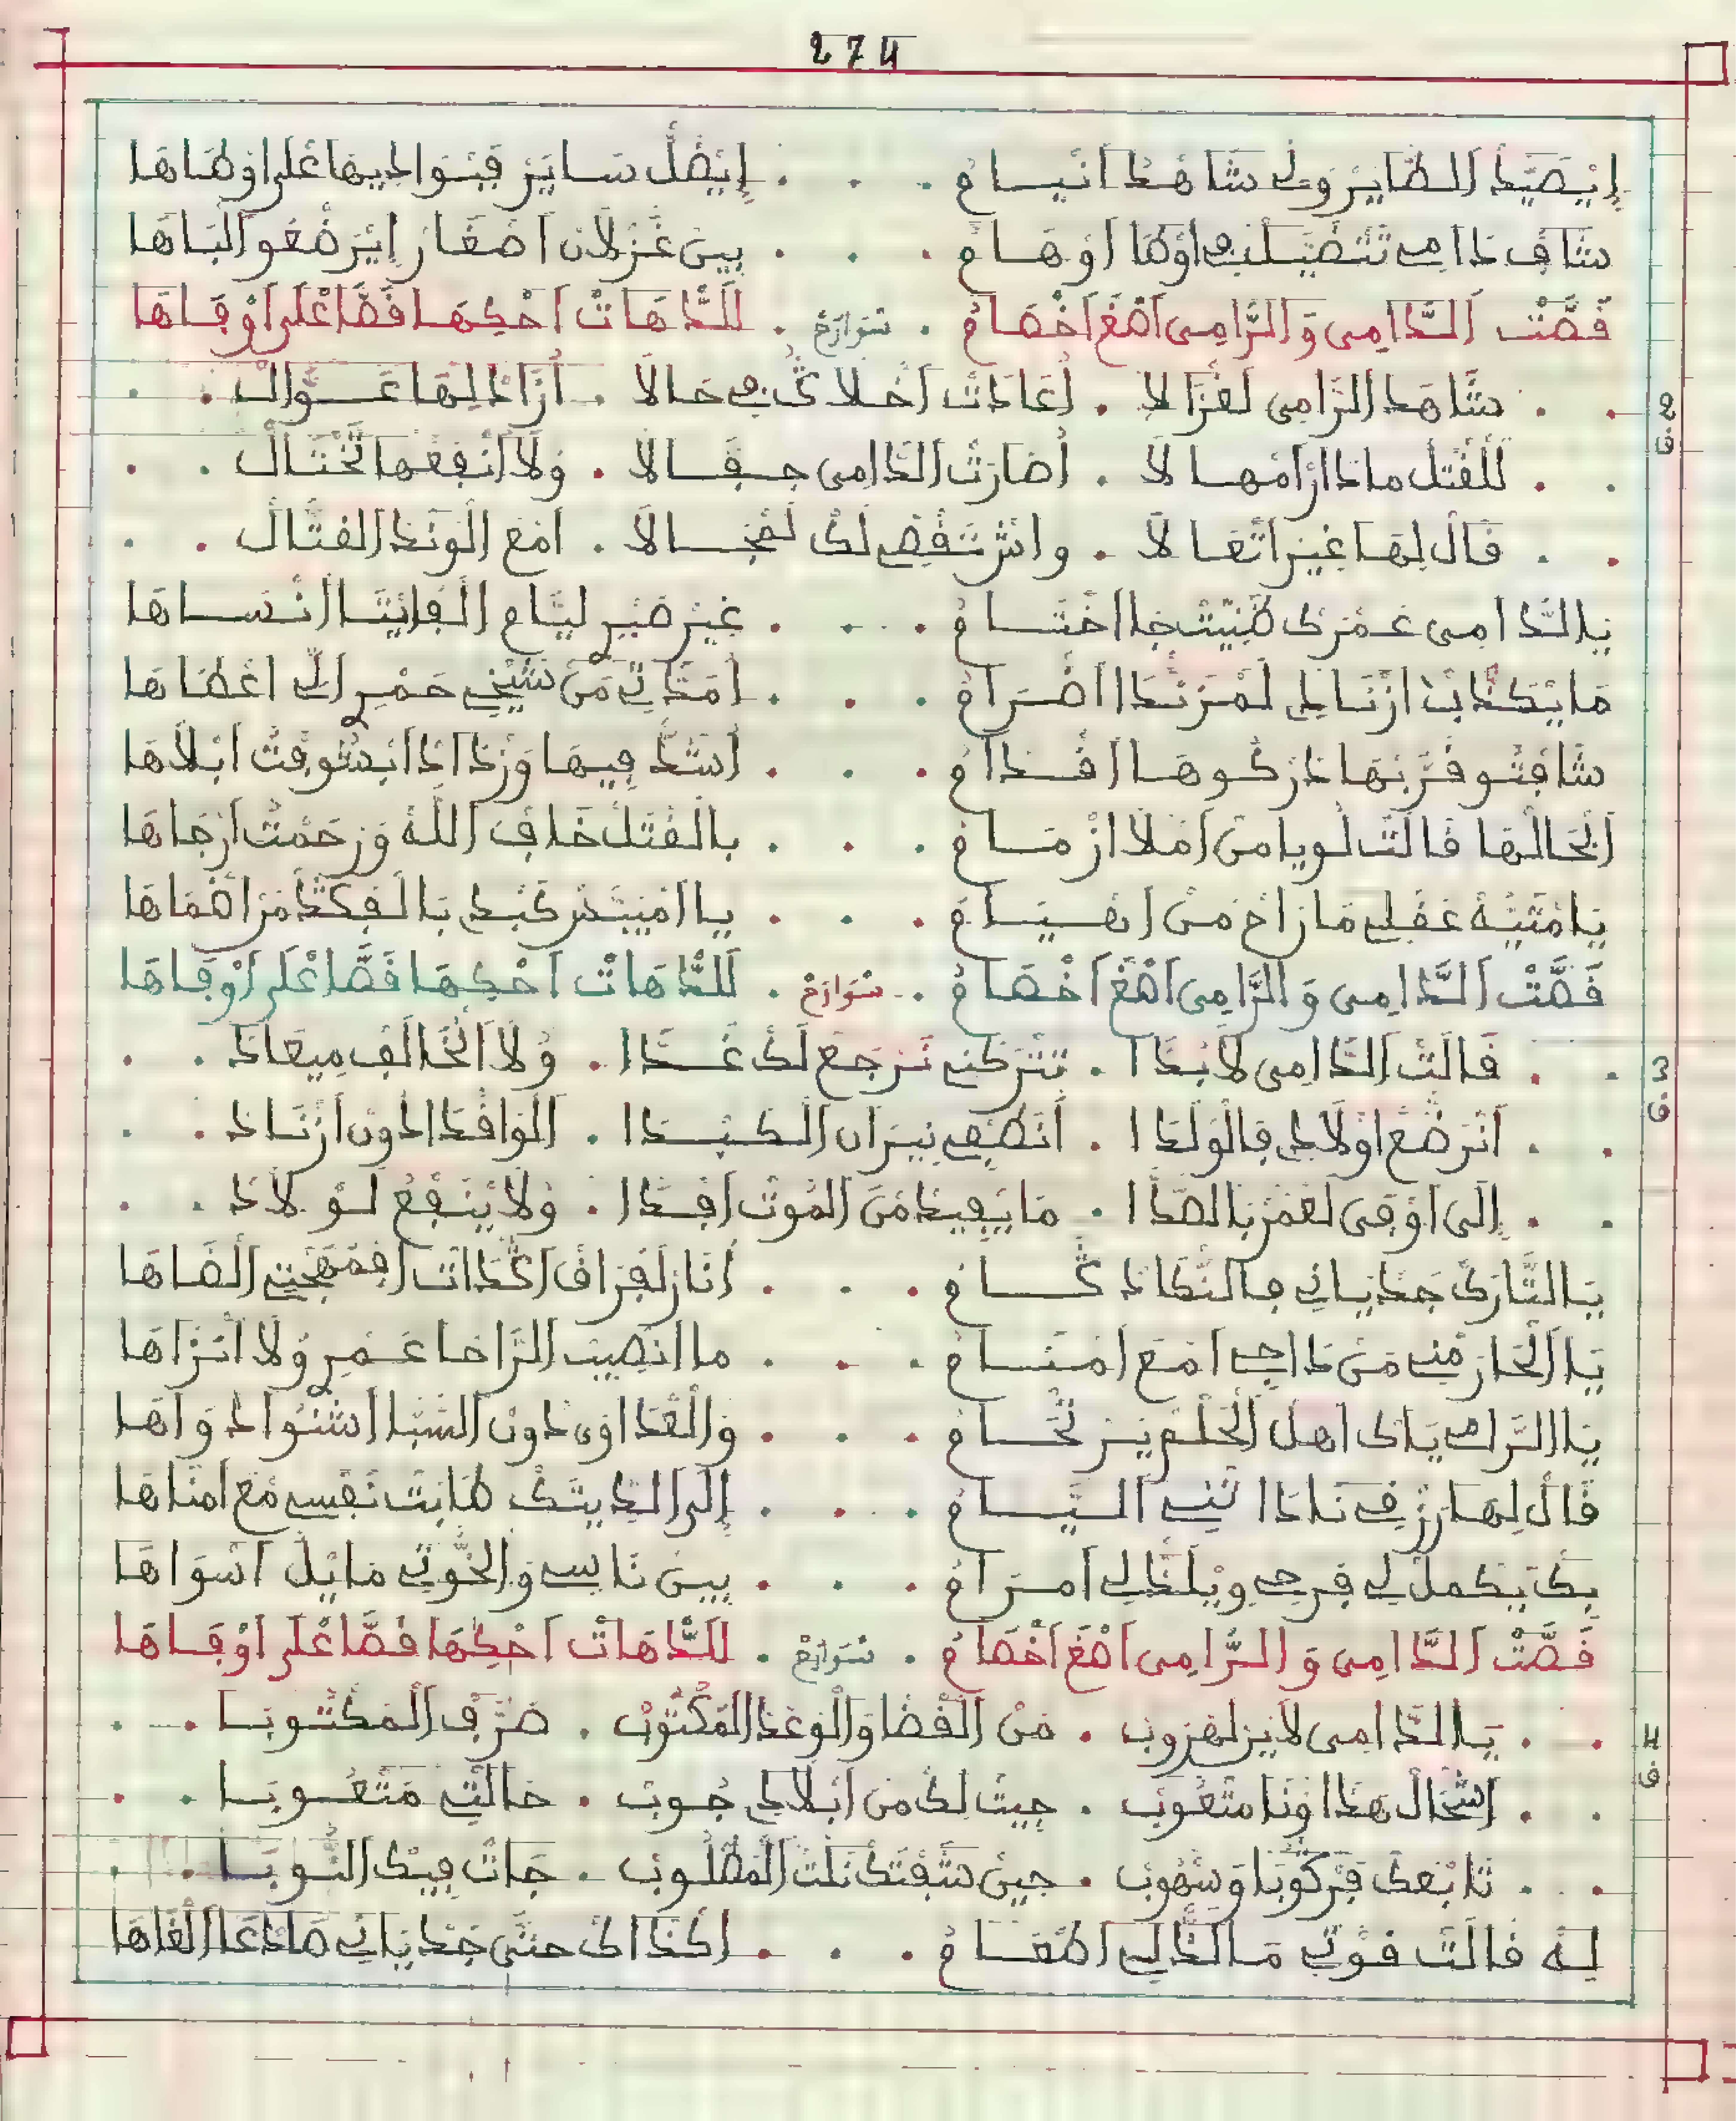 274
إيصيد الطاير ولى شاهد انيام . . . إيضل ساير فنوا ليها على اوطاها
شاف ذا مى تتصيلب اوكا اوهام . . . بين غزلان اصغار إيرضعو ألباها
قصت الدامى والرامى اصغ اخصام . شوارم . للدهات احكها قصا على اوفاها
2 ف
شاهد الرامى لغزالا . اعادت اخلاك فى حالا . أزاد لها عوال
للقتل ماذا رامها لا . اضارت الدامى جفالا . ولا انفعها تختال
قال لها غير اتعا لا . واش تقصى لك لمجالا . امع الوغد القتال
يالدامى عمرك ضنيت جا اختام . . . غير صبر ليام الفانيتا انساها
ما يكذاب ازنادى لمرندا اضرام . . . امداتى من شيخى حمر الى اعضاها
شافتو قربها ذركوها اقدام . . . اشد فيها وزداد ابشوفت ابلاها
الجا لها قالت لو يا من املا ازمام . . . بالقتل خاف الله وزحمت ارجاها
يا متيه غفلى ما زاخ من اهيام . . . يا امنيتر كبد بالفكد مراهماها
قصت الدامى والرامى اصغ اخصام . شوارم . للدهات احكها قصا على اوفاها
3 ف
قالت الدامى لابدا . تتركنى نرجع لك غدا . ولا انخالف ميعاد
انرضع اولادى فالولدا . أنطفى نيران الكبدا . الوافدا دون ازناد
إلى اوفى لعمر بالصدا . ما يفيد من الموت افدا . ولا ينفع لو لاد
يا التارك جديانى فالنكاد كام . . . أنار لفراف اكدات افمهجتى الضاها
يا الحارمنى من داجى امع امنام . . . ما انصيب الراحا عمر ولا انراها
يا الرامى ياك اهل الحلم يرحام . . . والعداوى دون السبا اشنوا دواها
قال لها رزفى نادا تنى اليام . . . إلى الديتك طابت نفسى مع امناها
بك يكمل لى فرحى ويلذلى امرام . . . بين ناسى والخوتى مايل اسواها
قصت الدامى والرامى اصغ اخصام . شوارم . للدهات احكها قصا على اوفاها
4 ف
يا الدامى لا يزلهروب . من القضا والوعد المكتوب . ضرف المكتوبا
اشحال هذا ونا متعوب . جيت لك من ابلادى جوب . حالتى متعوبا
تابعك فركوبا وسهوب . حين شفتك نلت المطلوب . جات فيك النوبا
له قالت فوتى ما لذلى اطعام . . . اكذاك حتى جديانى ماذعا الغاها